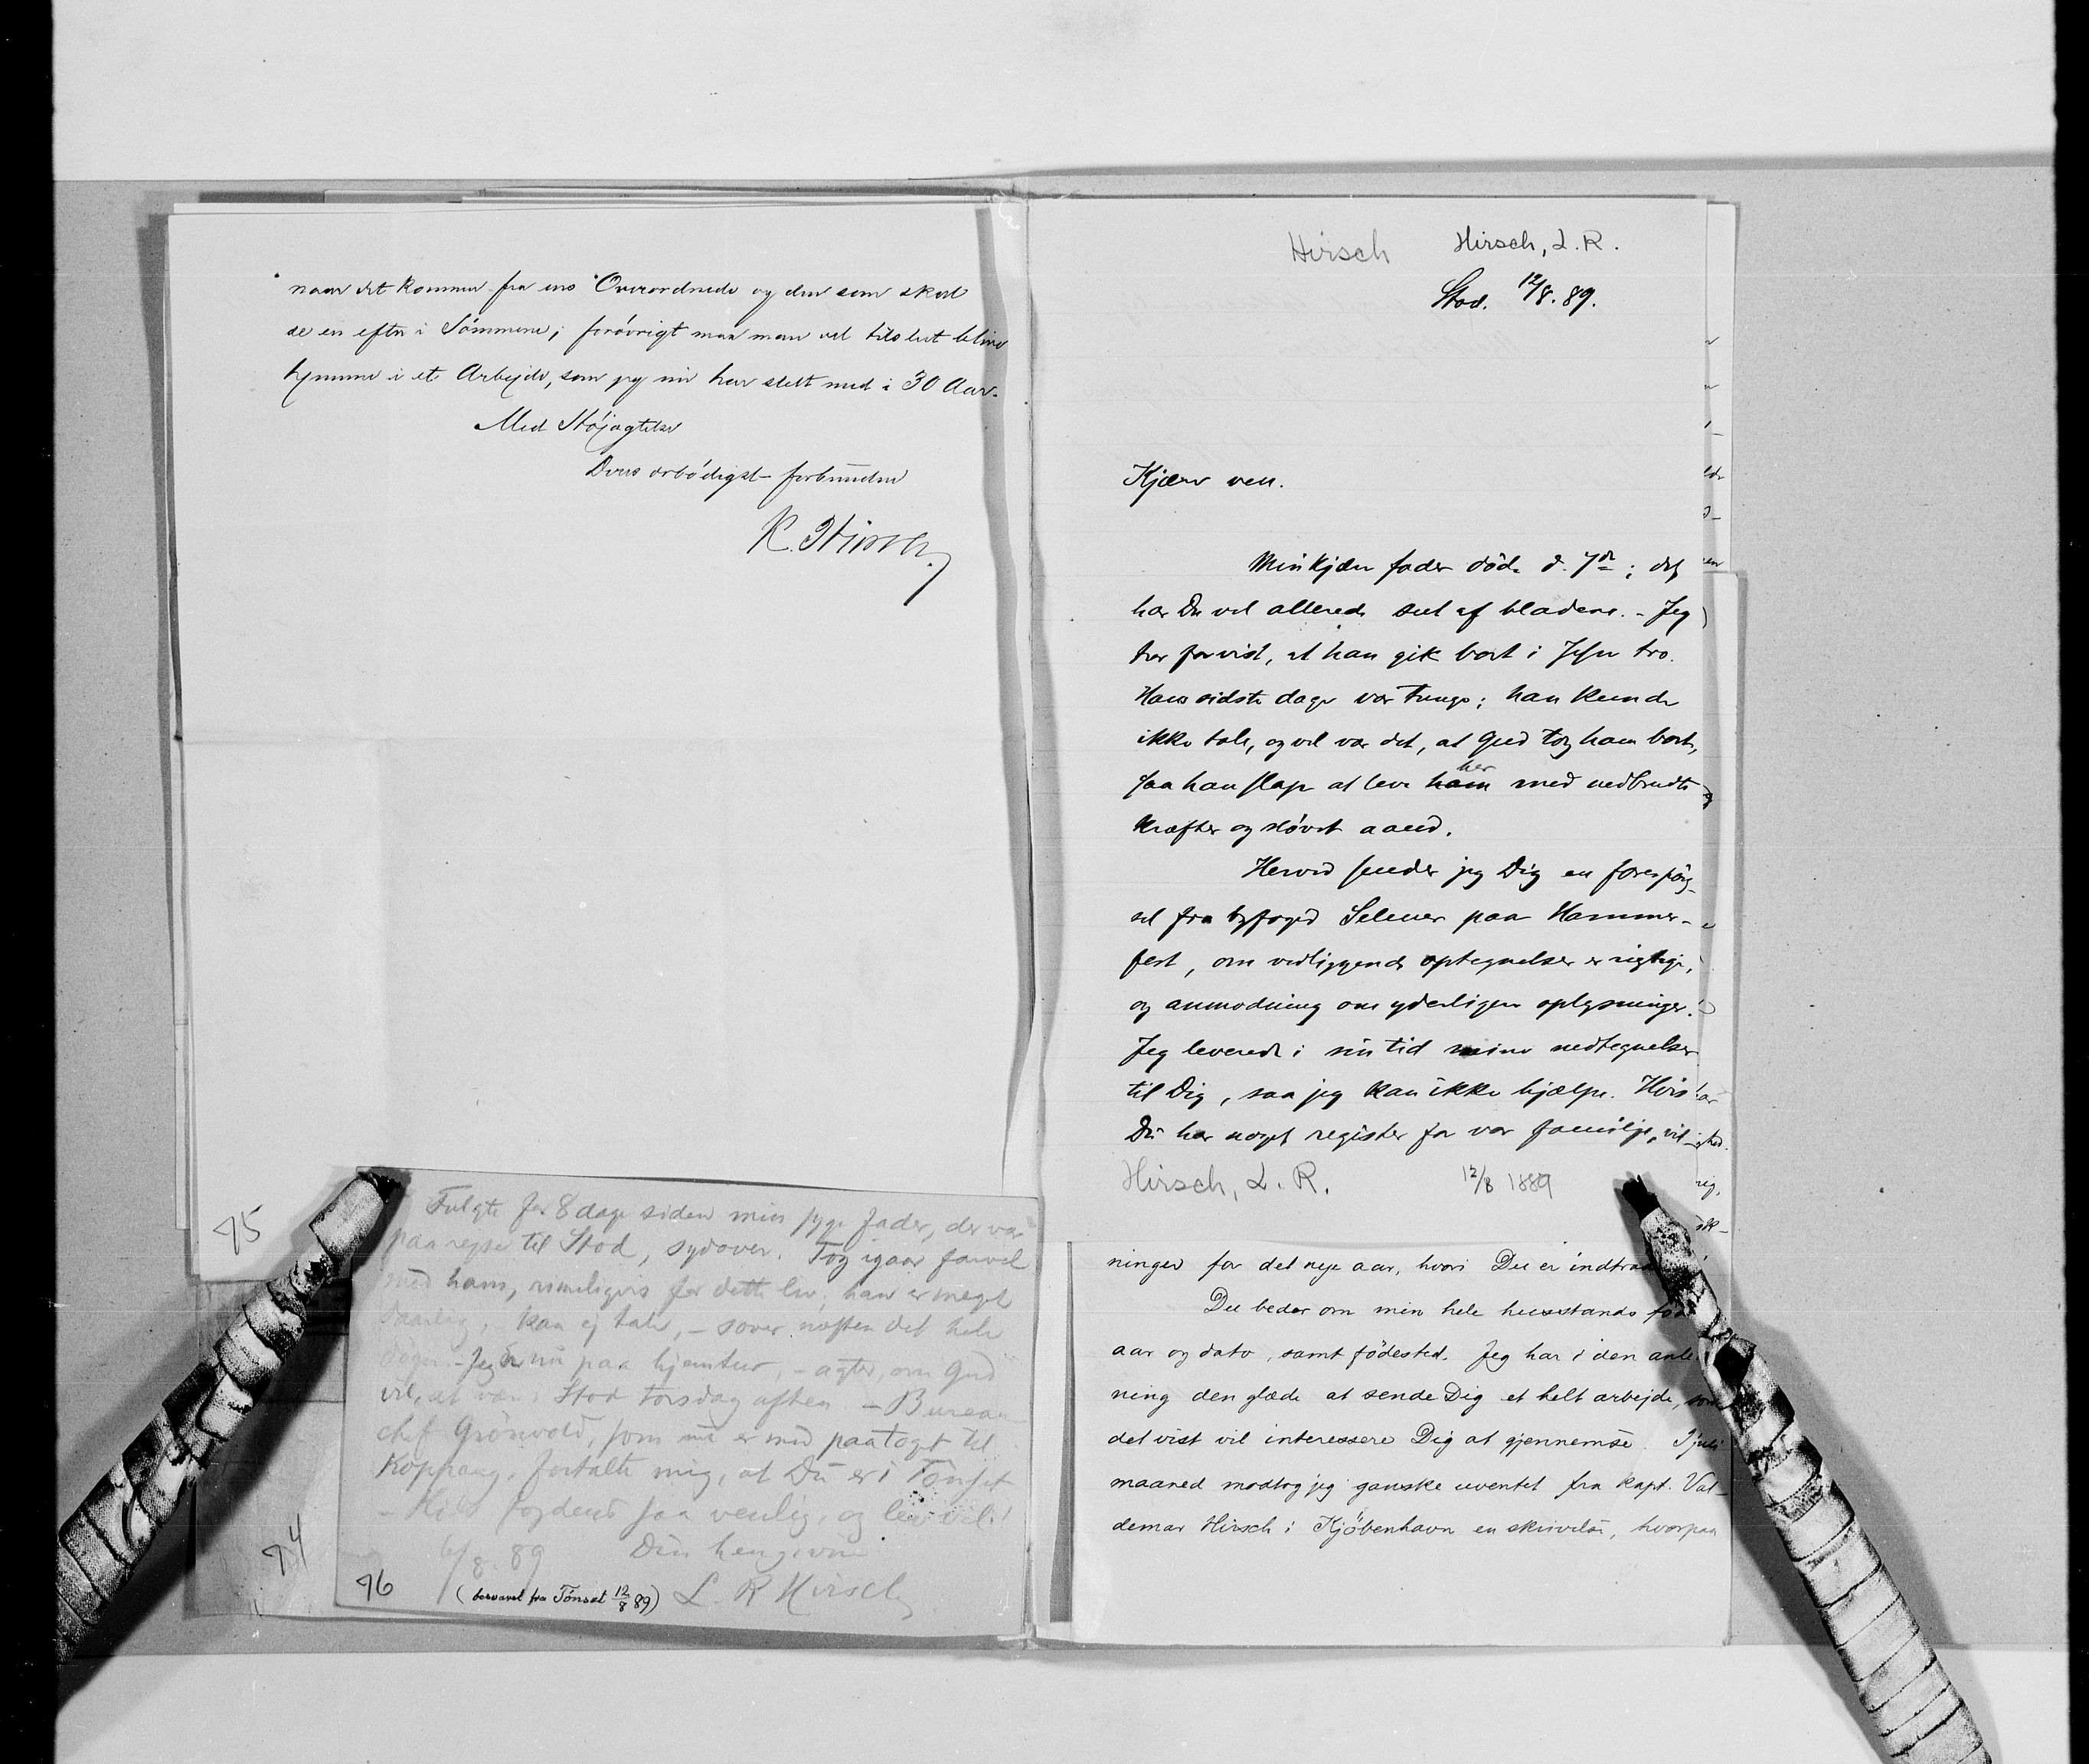 naar det kommer fra ens Overordnede og den som skal
de en efter i Sömmene; forövrigt maa man vel tilslut blive
hjemme i et Arbejde, som jeg nu har stelt med i 30 Aar.
Med Höjagtelse
Deres ærbödigst forbundne
K. Hirsch
75
Fulgte for 8 dage siden min syge fader, der var
paa rejse til Stod, sydover. Tog igaar farvel
med ham, rimeligvis for dette liv; han er meget
daarlig, kan ej tale, – sover næsten det hele
dögn. – Jeg er nu paa hjemtur, – agter, om Gud
vil, at være i Stod torsdag aften. – Bureau
chef Grönvold, som nu er med paa toget til
Koppang, fortalte mig, at Du er i Tönset
– Hils saa venlig, og lev vel!
6/8. 89 Din hengivne
(besvaret fra Tönset 12/8 89) L. R. Hirsch
76
74
Hirsch Hirsch, L. R.
Stod. 12/8. 89.
Kjære ven.
Min kjære fader döde d. 7de; det
har Du vel allerede seet af bladene. – Jeg
tror forvist, at han gik bort i Jesu tro.
Hans sidste dage var tunge; han kunde
ikke tale, og vel var det, at Gud tog ham bort,
saa han slap at leve ham her med nedbrudte
kræfter og slövet aand.
Herved sender jeg Dig en forespörg-
sel fra byfoged Selmer paa Hammer-
fest, om vedliggende optegnelser er rigtige,
og anmodning om yderligere oplysninger.
Jeg leverede i sin tid mine nedtegnelser
til Dig, saa jeg kan ikke hjælpe. Hvis
Du har noget register for vor familje, vil
Hirsch, L. R. 12/8 1889
ninger for det nye aar, hvori Du er indtraadt
Du beder om min hele husstands föd
aar og dato, samt födested. Jeg har i den anled
ning den glæde at sende Dig et helt arbejde, som
det vist vil interessere Dig at gjennemse. I juli
maaned modtog jeg ganske uventet fra kapt. Val-
demar Hirsch i Kjöbenhavn en skrivelse, hvorpaa